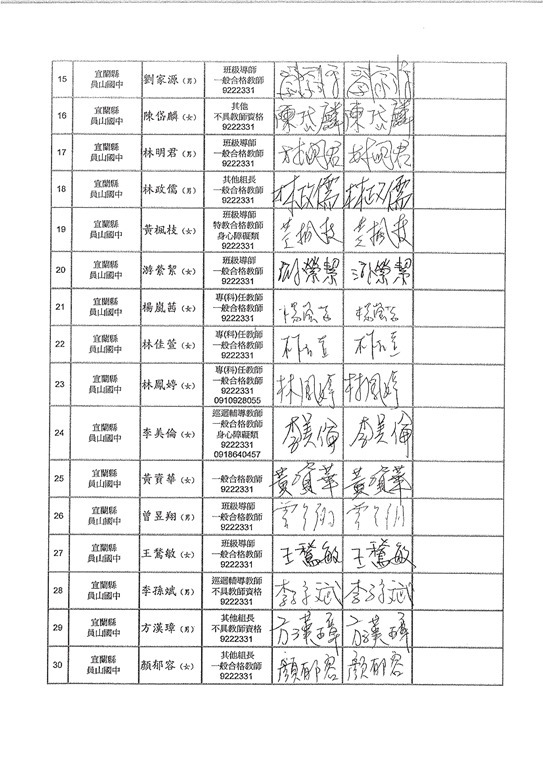 15 宜蘭縣 員山國中 劉家源（男） 班級導師 一般合格教師 9222331 劉家源 劉家源
16 宜蘭縣 員山國中 陳岱麟（女） 其他 不具教師資格 9222331 陳岱麟 陳岱麟
17 宜蘭縣 員山國中 林明君（男） 班級導師 一般合格教師 9222331 林明君 林明君
18 宜蘭縣 員山國中 林政儒（男） 其他組長 一般合格教師 9222331 林政儒 林政儒
19 宜蘭縣 員山國中 黃楓枝（女） 班級導師 特教合格教師 身心障礙類 9222331 黃楓枝 黃楓枝
20 宜蘭縣 員山國中 游縈絜（女） 班級導師 一般合格教師 9222331
21 宜蘭縣 員山國中 楊嵐茜（女） 專(科)任教師 一般合格教師 9222331
22 宜蘭縣 員山國中 林佳萱（女） 專(科)任教師 一般合格教師 9222331
23 宜蘭縣 員山國中 林鳳婷（女） 專(科)任教師 一般合格教師 9222331 0910928055 林鳳婷 林鳳婷
24 宜蘭縣 員山國中 李美倫（女） 巡迴輔導教師 一般合格教師 身心障礙類 9222331 0918640457 李美倫 李美倫
25 宜蘭縣 員山國中 黃寶華（女） 一般合格教師 9222331 黃寶華 黃寶華
26 宜蘭縣 員山國中 曾昱翔（男） 班級導師 一般合格教師 9222331
27 宜蘭縣 員山國中 王鶖敏（女） 班級導師 一般合格教師 9222331
28 宜蘭縣 員山國中 李孫斌（男） 巡迴輔導教師 不具教師資格 9222331 李孫斌 李孫斌
29 宜蘭縣 員山國中 方漢璋（男） 其他組長 不具教師資格 9222331 方漢璋 方漢璋
30 宜蘭縣 員山國中 顏郁容（女） 其他組長 一般合格教師 9222331 顏郁容 顏郁容